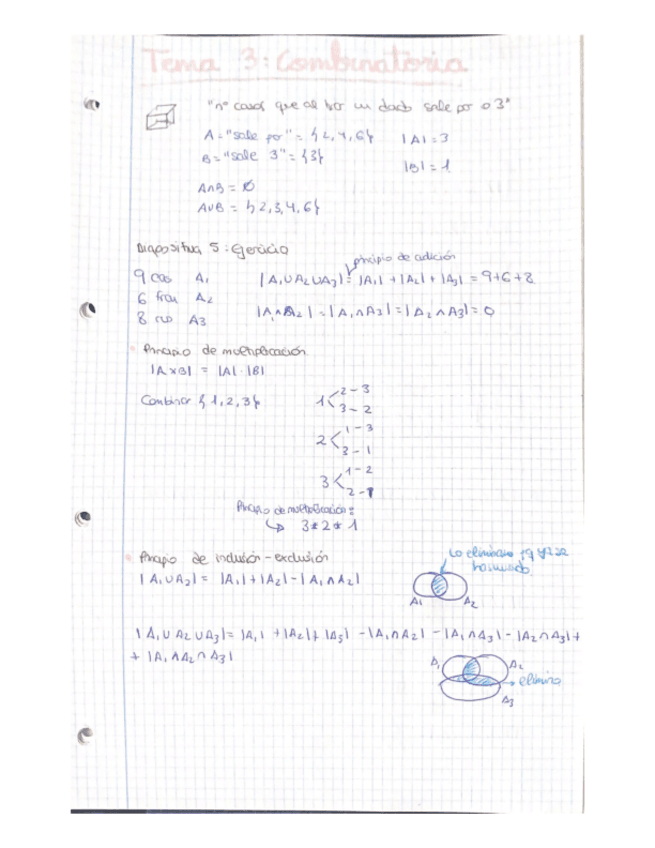 Tema 3: Combinatoria
"nº casos que al tirar un dado sale par o 3"
A = "sale par" = {2,4,6} |A| = 3
B = "sale 3" = {3} |B| = 1
A∩B = ∅
A∪B = {2,3,4,6}
Diapositiva 5: Ejercicio
principio de adición
9 A₁ |A₁∪A₂∪A₃| = |A₁|+|A₂|+|A₃| = 9+6+8
6 A₂
|A₁∩A₂| = |A₁∩A₃| = |A₂∩A₃| = 0
8 A₃
Principio de multiplicación
|A×B| = |A|·|B|
Combinar {1,2,3}
1 < 2 - 3
3 - 2
2 < 1 - 3
3 - 1
3 < 1 - 2
2 - 1
Principio de multiplicación:
↳ 3*2*1
Principio de inclusión-exclusión
lo eliminamos pq ya se
ha sumado
|A₁∪A₂| = |A₁|+|A₂|-|A₁∩A₂|
A₁ A₂
|A₁∪A₂∪A₃| = |A₁|+|A₂|+|A₃| -|A₁∩A₂| -|A₁∩A₃| -|A₂∩A₃| +
+ |A₁∩A₂∩A₃|
A₁ A₂
→ elimino
A₃